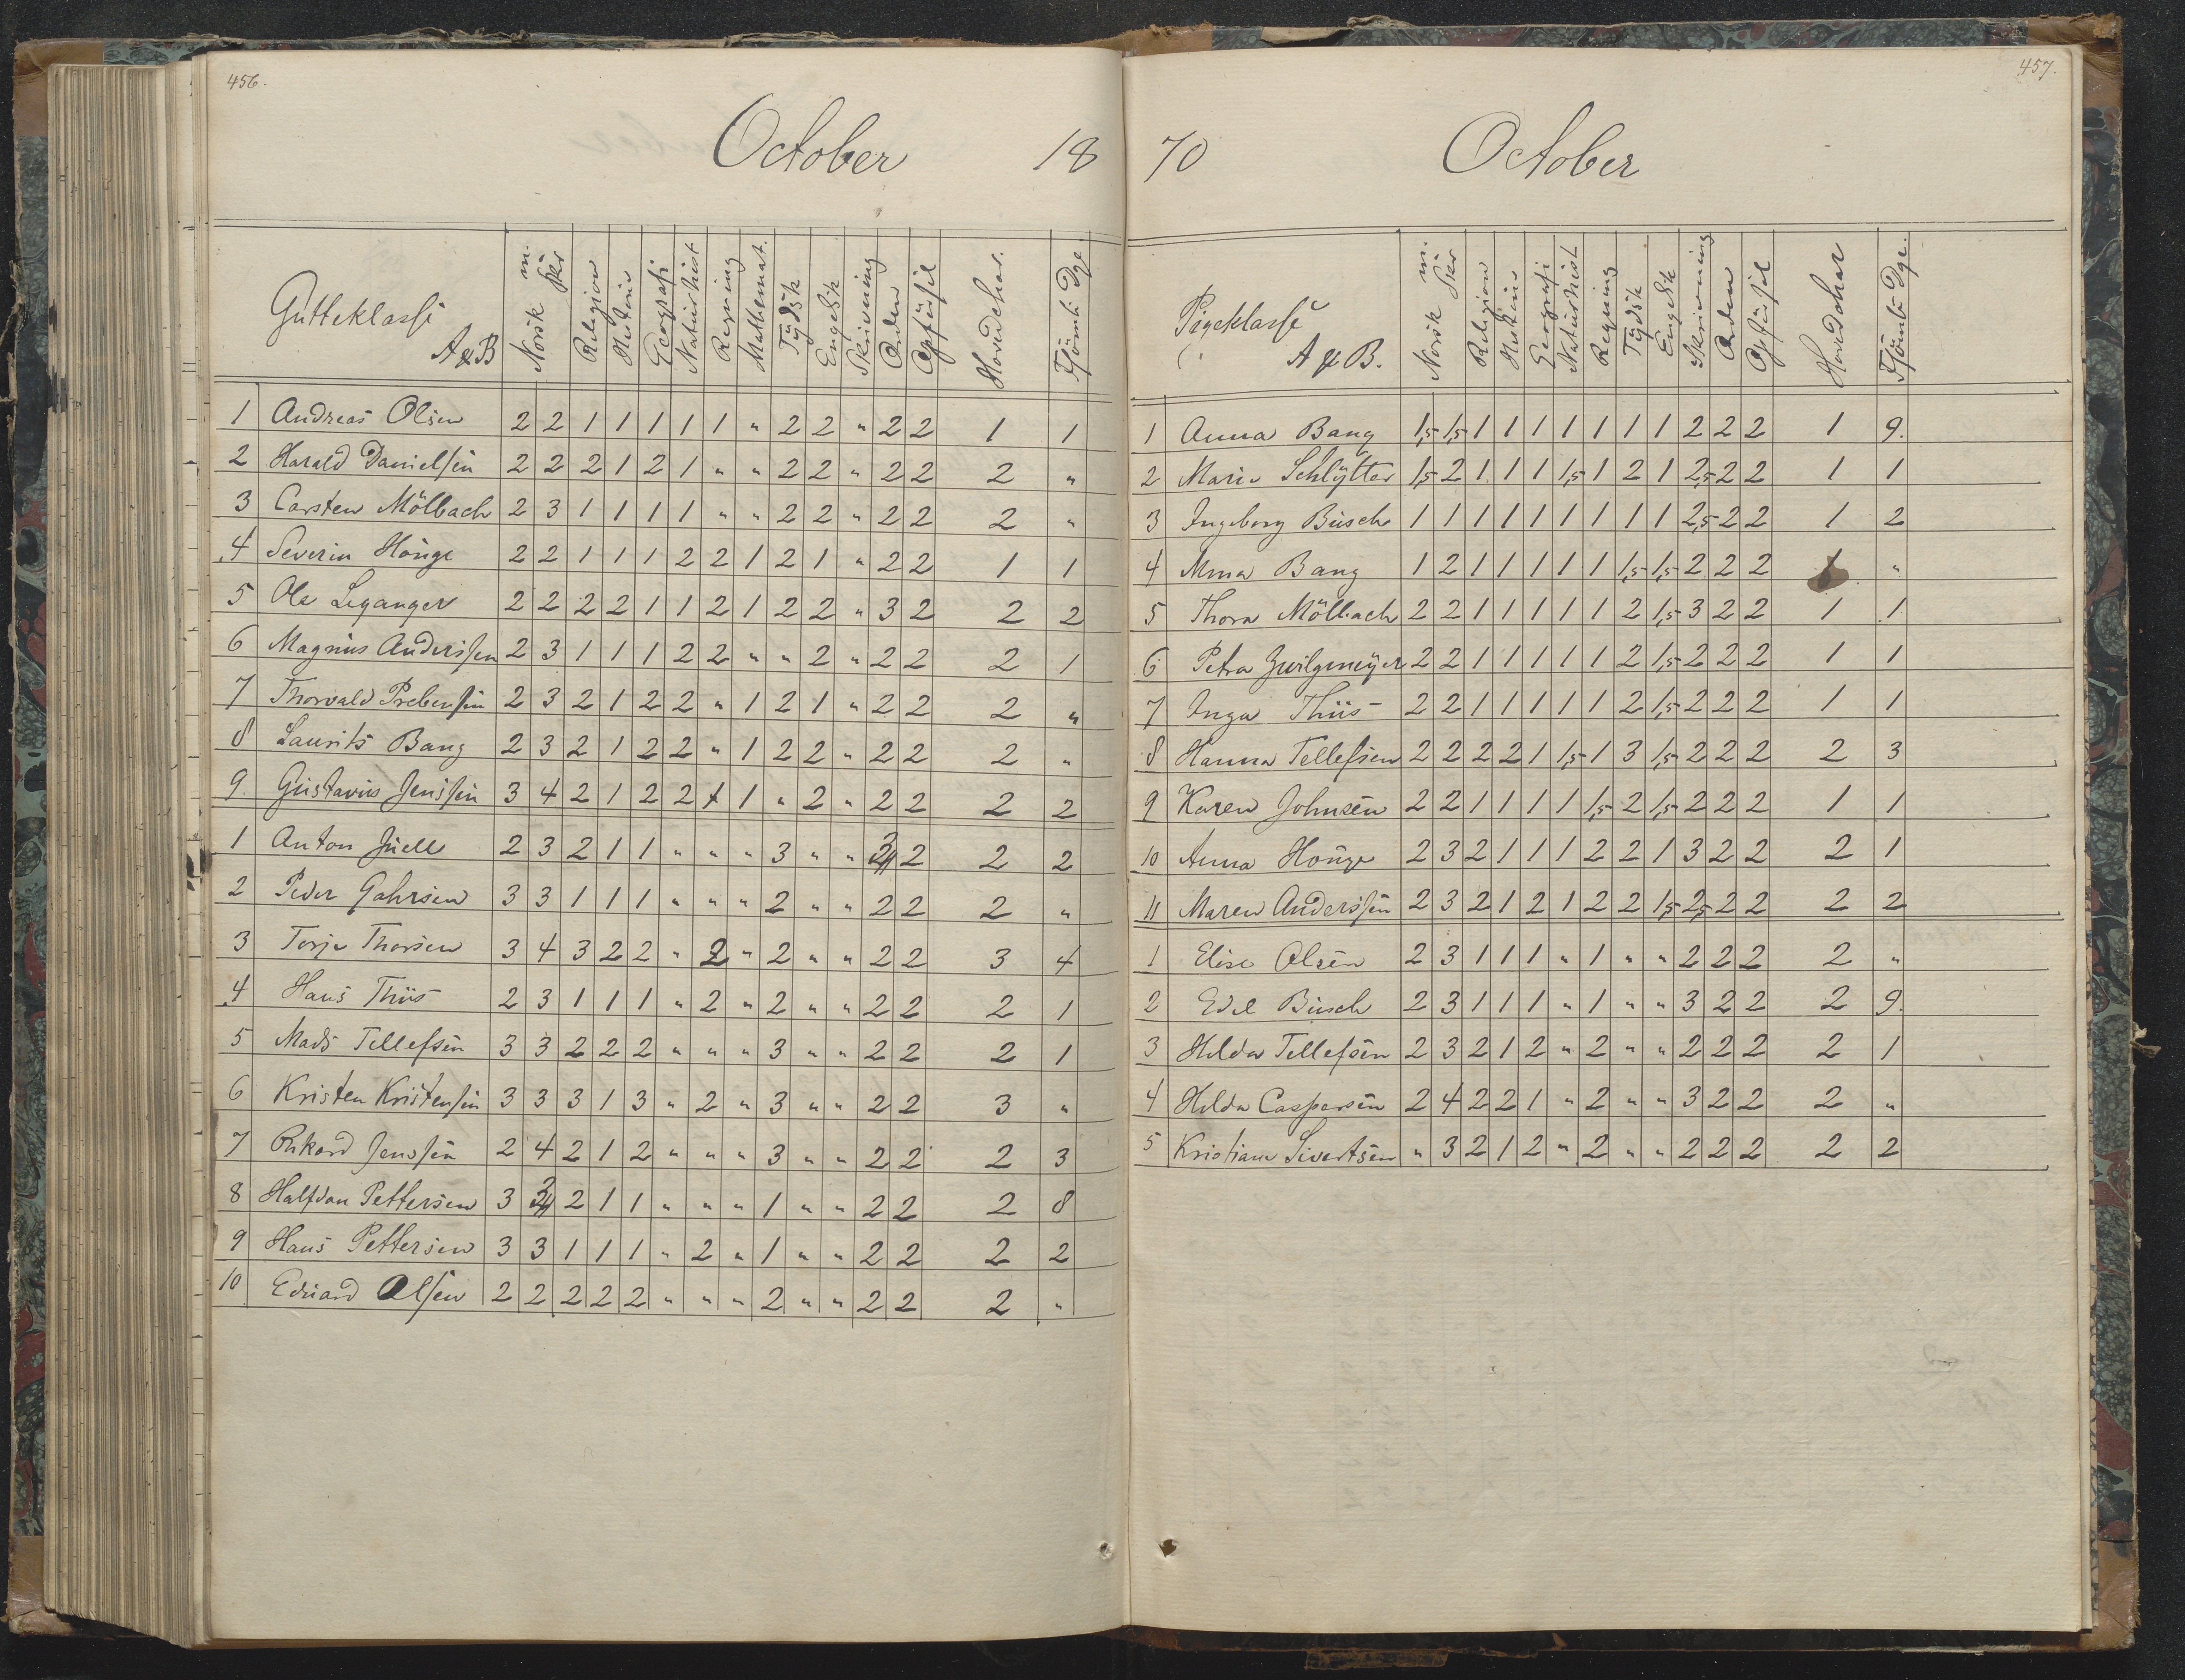 456.
October 18
Gutteklasse
A & B
Norsk m. Skr Religion Historie Geografi Naturhist Regning Mathemat. Tydsk Engelsk Skrivning Orden Opførsel Hovedchar. Fsömte Dge.
1 Andreas Olsen 2 2 1 1 1 1 1 " 2 2 " 2 2 1 1
2 Harald Danielsen 2 2 2 1 2 1 " " 2 2 " 2 2 2 "
3 Carsten Mölbach 2 3 1 1 1 1 " " 2 2 " 2 2 2 "
4 Severin Houge 2 2 1 1 1 2 2 1 2 1 " 2 2 1 1
5 Ole Leganger 2 2 2 2 1 1 2 1 2 2 " 3 2 2 2
6 Magnus Anderssen 2 3 1 1 1 2 2 " " 2 " 2 2 2 1
7 Thorvald Prebensen 2 3 2 1 2 2 " 1 2 1 " 2 2 2 "
8 Laurits Bang 2 3 2 1 2 2 " 1 2 2 " 2 2 2 "
9 Gustavus Jenssen 3 4 2 1 2 2 1 1 " 2 " 2 2 2 2
1 Anton Juell 2 3 2 1 1 " " " 3 " " 3 2 2 2
2 Peder Gahrsen 3 3 1 1 1 " " " 2 " " 2 2 2 "
3 Terje Thorsen 3 4 3 2 2 " 2 " 2 " " 2 2 3 4
4 Hans Thiis 2 3 1 1 1 " 2 " 2 " " 2 2 2 1
5 Mads Tellefsen 3 3 2 2 2 " " " 3 " " 2 2 2 1
6 Kristen Kristensen 3 3 3 1 3 " 2 " 3 " " 2 2 3 "
7 Rikard Jenssen 2 4 2 1 2 " " " 3 " " 2 2 2 3
8 Halfdan Pettersen 3 3 2 1 1 " " " 1 " " 2 2 2 8
9 Hans Pettersen 3 3 1 1 1 " 2 " 1 " " 2 2 2 2
10 Eduard Olsen 2 2 2 2 2 " " " 2 " " 2 2 2 "
457.
70 October
Pigeklasse
A & B.
Norsk m. Skr Religion Historie Geografi Naturhist Regning Tydsk Engelsk Skrivning Orden Opførsel Hovedchar Fsömte Dge.
1 Anna Bang 1,5 1,5 1 1 1 1 1 1 1 2 2 2 1 9.
2 Marie Schlytter 1,5 2 1 1 1 1,5 1 2 1 2,5 2 2 1 1
3 Ingeborg Busch 1 1 1 1 1 1 1 1 1 2,5 2 2 1 2
4 Mina Bang 1 2 1 1 1 1 1 1,5 1,5 2 2 2 1 "
5 Thora Mölbach 2 2 1 1 1 1 1 2 1,5 3 2 2 1 1
6 Petra Zwilgmeyer 2 2 1 1 1 1 1 2 1,5 2 2 2 1 1
7 Inga Thiis 2 2 1 1 1 1 1 2 1,5 2 2 2 1 1
8 Hanna Tellefsen 2 2 2 2 1 1,5 1 3 1,5 2 2 2 2 3
9 Karen Johnsen 2 2 1 1 1 1 1,5 2 1,5 2 2 2 1 1
10 Anna Houge 2 3 2 1 1 1 2 2 1 3 2 2 2 1
11 Maren Anderssen 2 3 2 1 2 1 2 2 1,5 2,5 2 2 2 2
1 Elise Olsen 2 3 1 1 1 " 1 " " 2 2 2 2 "
2 Edel Busch 2 3 1 1 1 " 1 " " 3 2 2 2 9.
3 Hilda Tellefsen 2 3 2 1 2 " 2 " " 2 2 2 2 1
4 Hilda Caspersen 2 4 2 2 1 " 2 " " 3 2 2 2 "
5 Kristiane Sivertsen " 3 2 1 2 " 2 " " 2 2 2 2 2